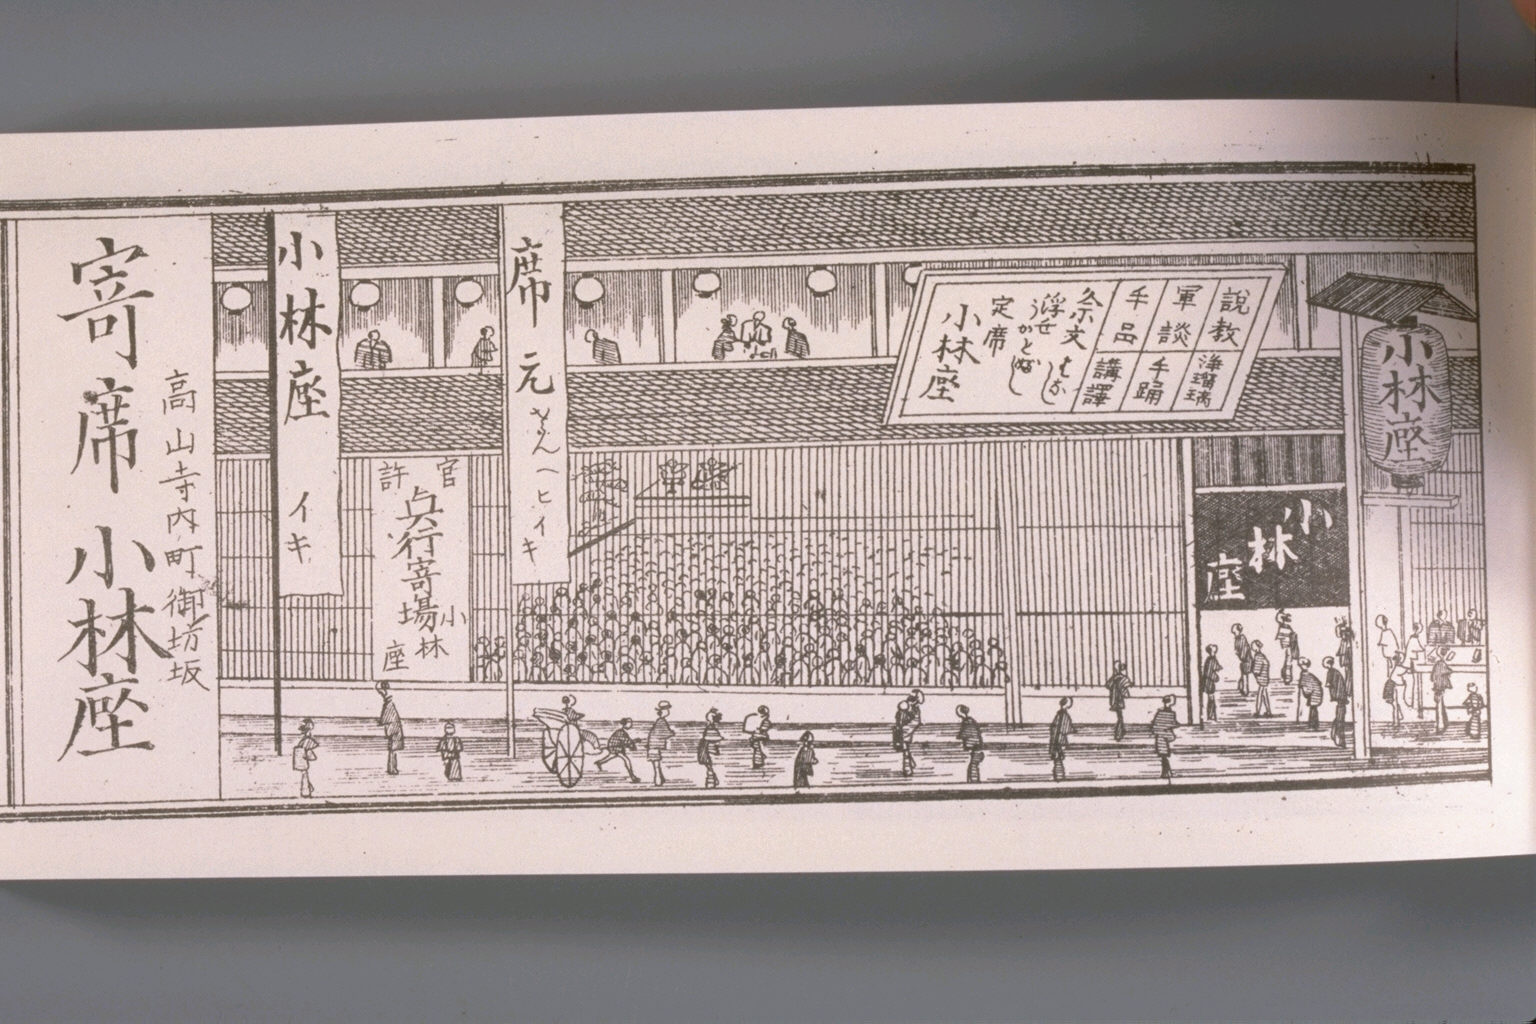 小林座
小林座
説教
浄瑠璃
軍談
手踊
手品
講譯
祭文
はなし
浮世
うかとぬし
定席
小林座
席元
さんヘヒイキ
官許
興行寄場
小林座
小林座
イキ
高山寺内町御坊坂
寄席小林座